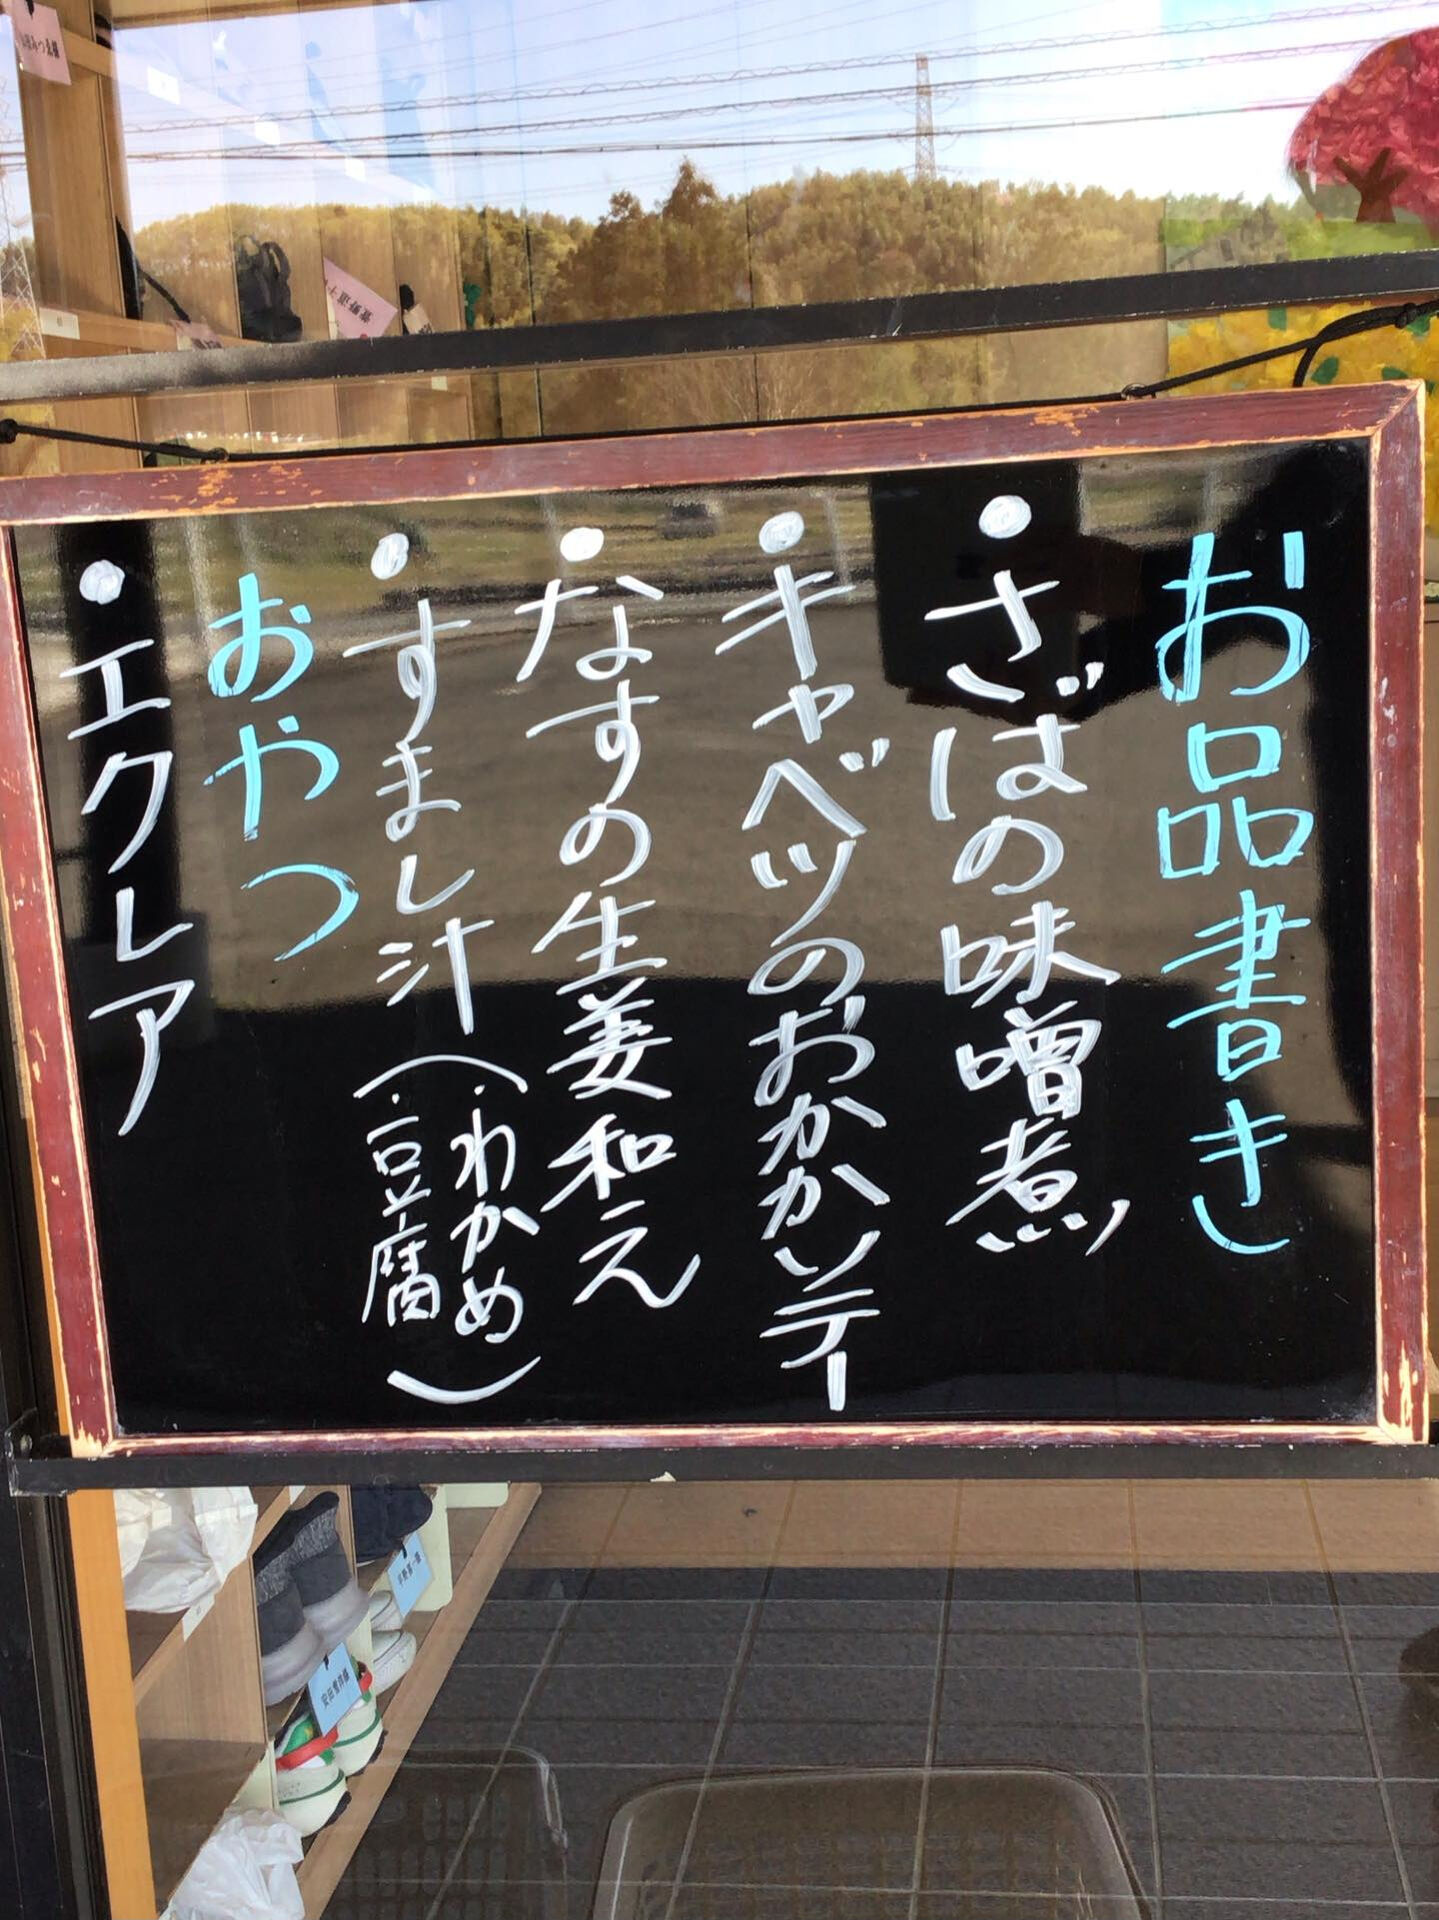 お品書き
・さばの味噌煮
・キャベツのおかかソテー
・なすの生姜和え
・すまし汁(・わかめ
・豆腐)
おやつ
・エクレア